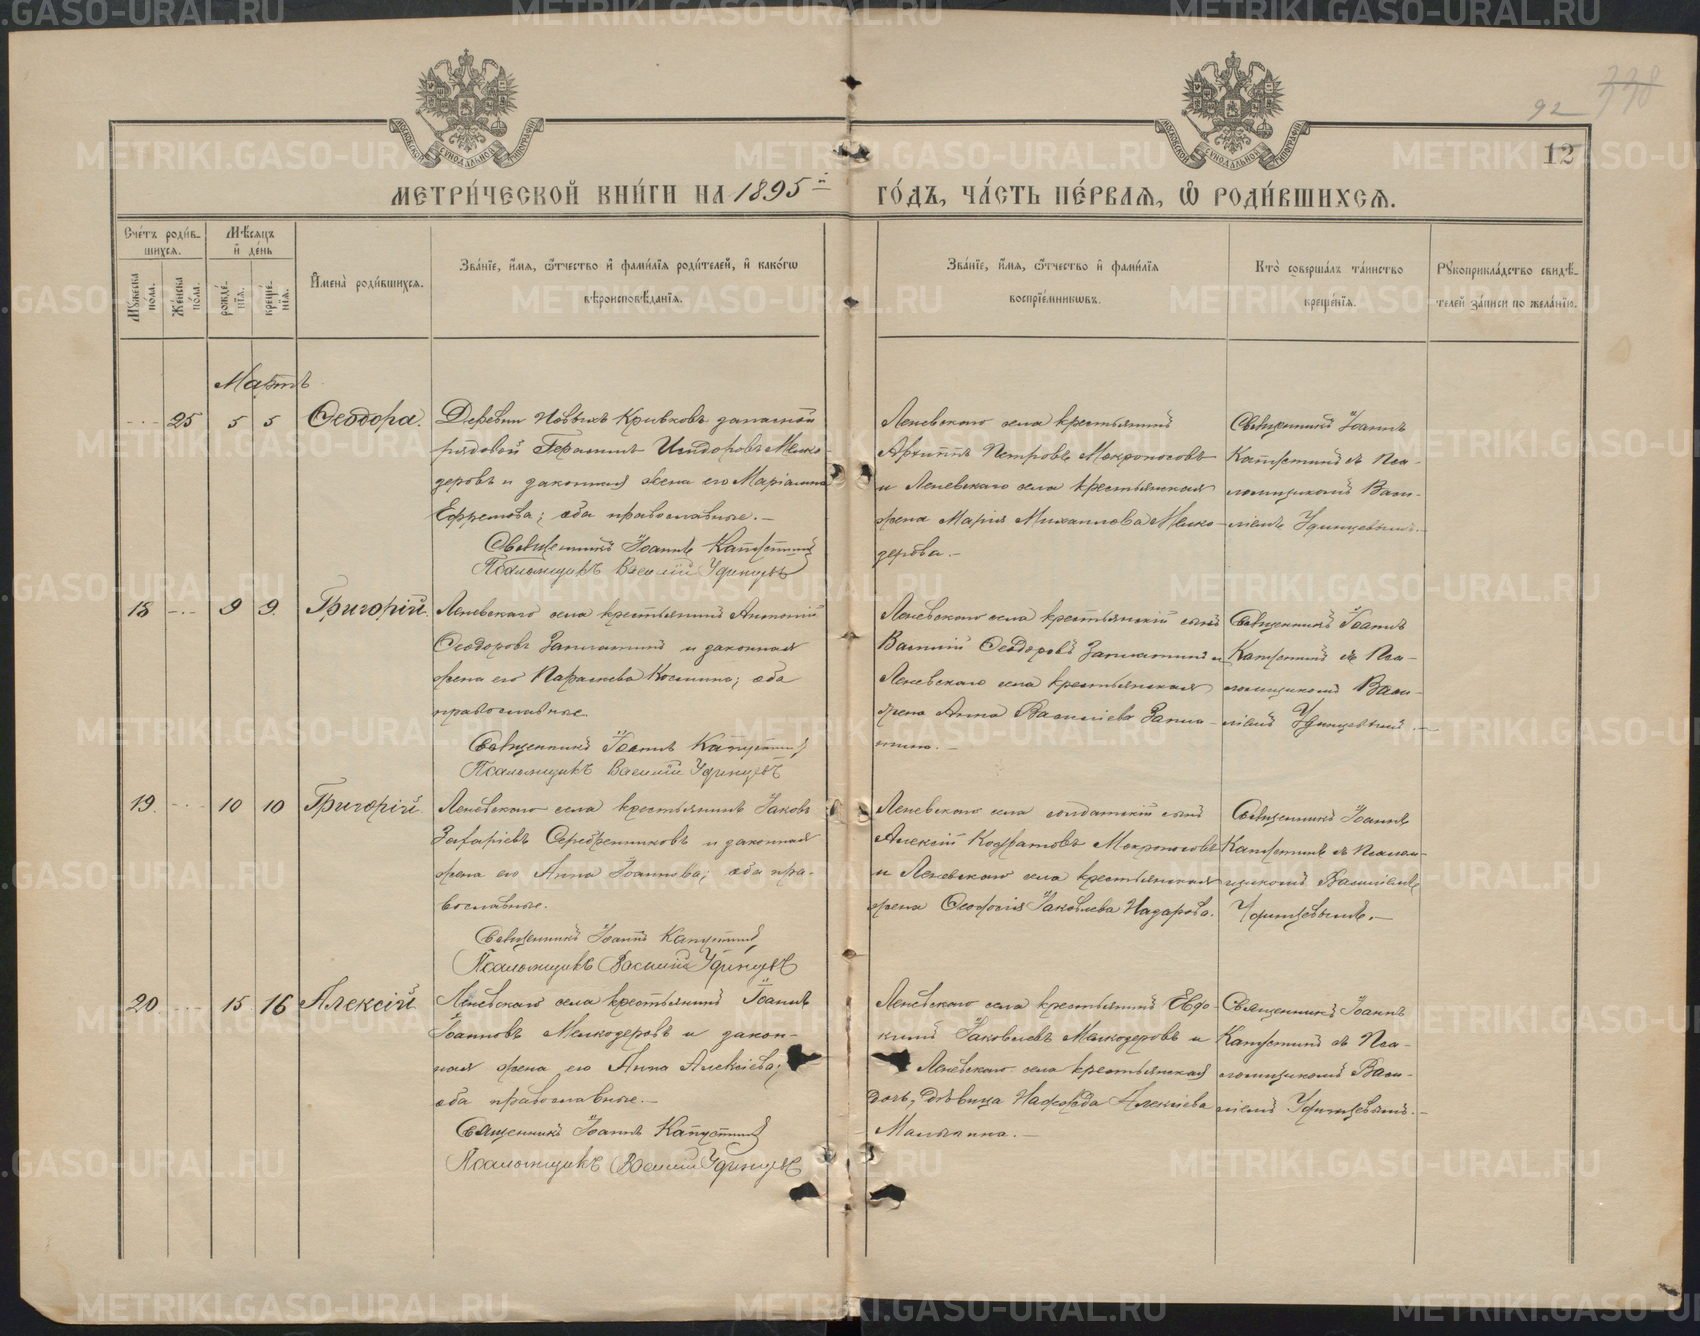 92 338
12
МЕТРИ́ЧЕСКОЙ КНИ́ГИ НА 1895й ГО́ДЪ, ЧА́СТЬ ПЕ́РВАЯ, Ѡ РОДИ́ВШИХСЯ.
Сче́тъ роди́вшихся.
Мѣ́сяцъ и де́нь
Му́жеска по́ла.
Же́нска по́ла.
рожде́нїя.
креще́нїя.
И҆мена̀ роди́вшихся.
Зва́нїе, и҆́мя, ѻ҆́тчество и҆ фами́лїя роди́телей, и҆ како́гѡ
вѣроисповѣ́данїя.
Зва́нїе, и҆́мя, ѻ҆́тчество и҆ фами́лїя
воспрїе́мникѡвъ.
Кто̀ соверша́лъ та́инство
креще́нїя.
Рꙋкоприкла́дство свидѣ́телей за́писи по жела́нїю.
Мартъ
25 5 5 Ѳеодора.
Деревни Новыхъ Кривковъ запасной
рядовой Герасимъ Исидоровъ Мелко-
деровъ и законная жена его Маріамна
Ефремова; оба православные.—
Священникъ Іоаннъ Капустинъ
Псаломщикъ Василій Удинцевъ
Леневскаго села крестьянинъ
Архиппъ Петровъ Мокроносовъ
и Леневскаго села крестьянская
жена Марія Михаилова Мелко-
дерова.—
Священникъ Іоаннъ
Капустинъ съ Пса-
ломщикомъ Васи-
ліемъ Удинцевымъ.
18 9 9. Григорій.
Леневскаго села крестьянинъ Антоній
Ѳеодоровъ Запиаткинъ и законная
жена его Параскева Космина; оба
православные.
Священникъ Іоаннъ Капустинъ
Псаломщикъ Василій Удинцевъ
Леневскаго села крестьянскій сынъ
Василій Ѳеодоровъ и
Леневскаго села крестьянская
жена Анна Василіева
Священникъ Іоаннъ
Капустинъ съ Пса-
ломщикомъ Васи-
ліемъ Удинцевымъ.—
19. 10 10 Григорій.
Леневскаго села крестьянинъ Іаковъ
Захаріевъ Серебренниковъ и законная
жена его Анна Іоаннова; оба пра-
вославные.
Священникъ Іоаннъ Капустинъ
Псаломщикъ Василій Удинцевъ
Леневскаго села солдатскій сынъ
Алексій Кодратовъ Мокроносовъ
и Леневскаго села крестьянская
жена Ѳеофосія Іаковлева Назарова.
Священникъ Іоаннъ
Капустинъ съ Псалом-
щикомъ Василіемъ
Удинцевымъ.—
20. 15 16 Алексій
Леневскаго села крестьянинъ Іоаннъ
Іоанновъ Мелкодеровъ и закон-
ная жена его Анна Алексіева;
оба православные.—
Священникъ Іоаннъ Капустинъ
Псаломщикъ Василій Удинцевъ
Леневскаго села крестьянинъ Евдо-
кимъ Іаковлевъ Малкодеровъ и
Леневскаго села крестьянская
дочь, дѣвица Надежда Алексіева
Священникъ Іоаннъ
Капустинъ съ Пса-
ломщикомъ Васи-
ліемъ Удинцевымъ.—
METRIKI.GASO-URAL.RU